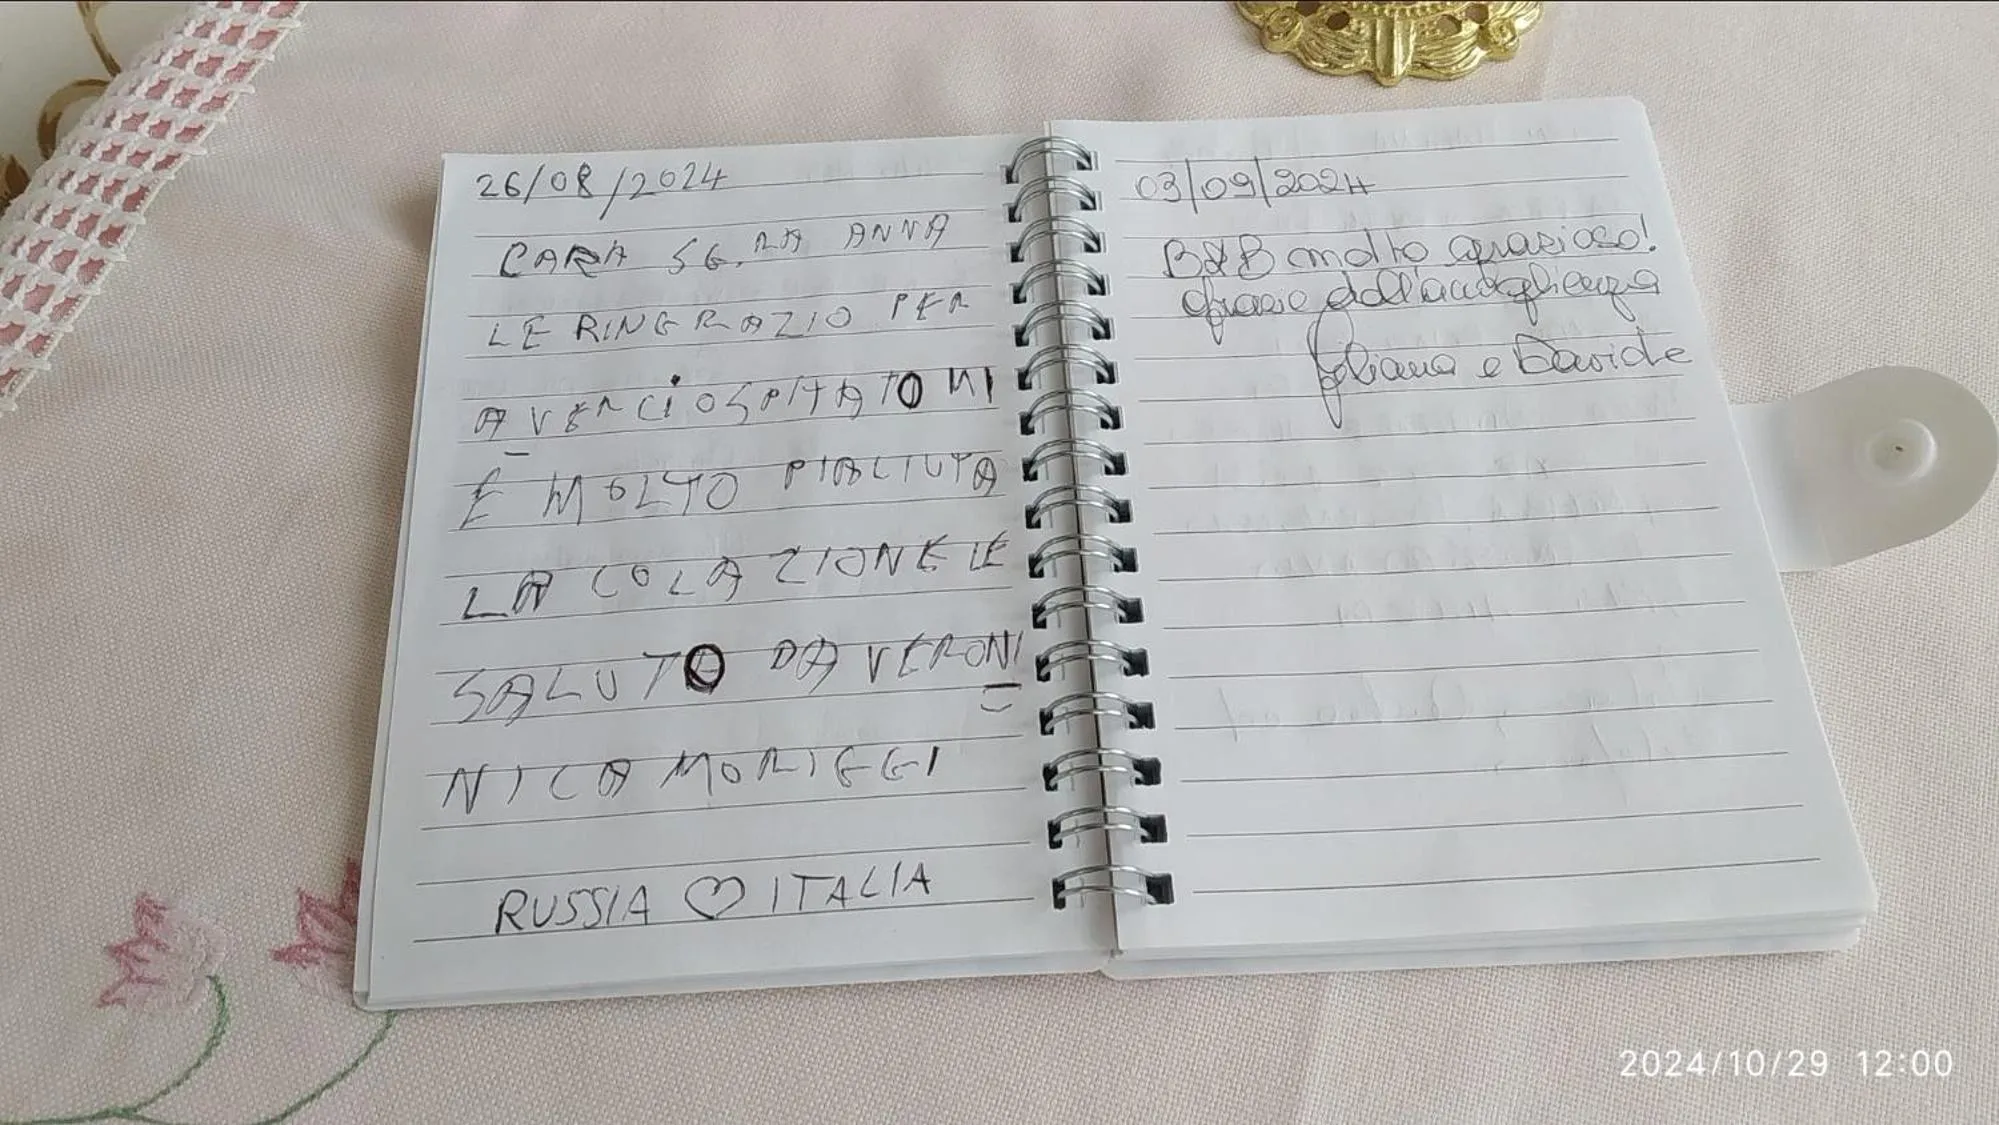 26/08/2024
CARA SG.RA ANNA
LE RINGRAZIO PER
AVERCI OSPITATO MI
É MOLTO PIACIUTA
LA COLAZIONE LE
SALUTO DA VERONI
NICA MORIGGI
RUSSIA ♡ ITALIA
03/09/2024
B&B molto grazioso!
Grazie dell'accoglienza
e Davide
2024/10/29 12:00